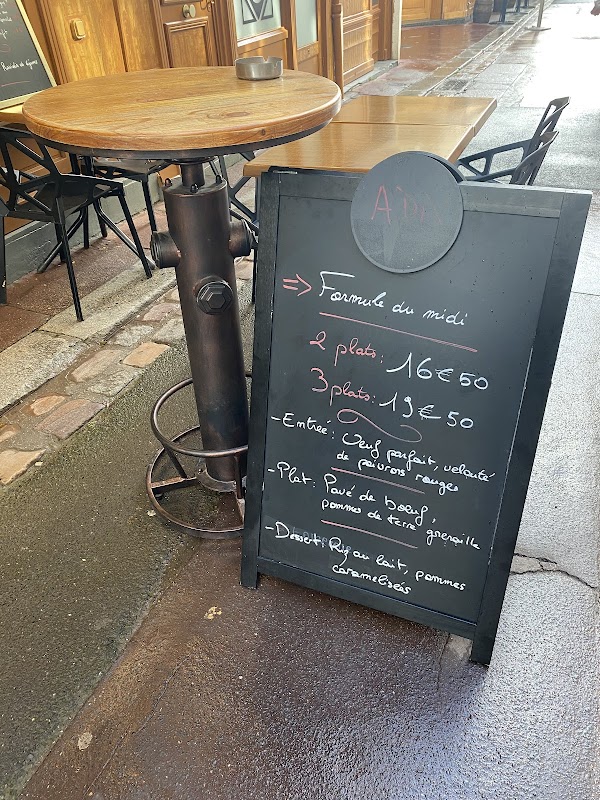 => Formule du midi
2 plats: 16€50
3 plats: 19€50
- Entrée: Oeuf parfait, velouté
de poivrons rouges
- Plat: Pavé de boeuf,
pommes de terre grenaille
- Dessert: Riz au lait, pommes
caramelisées